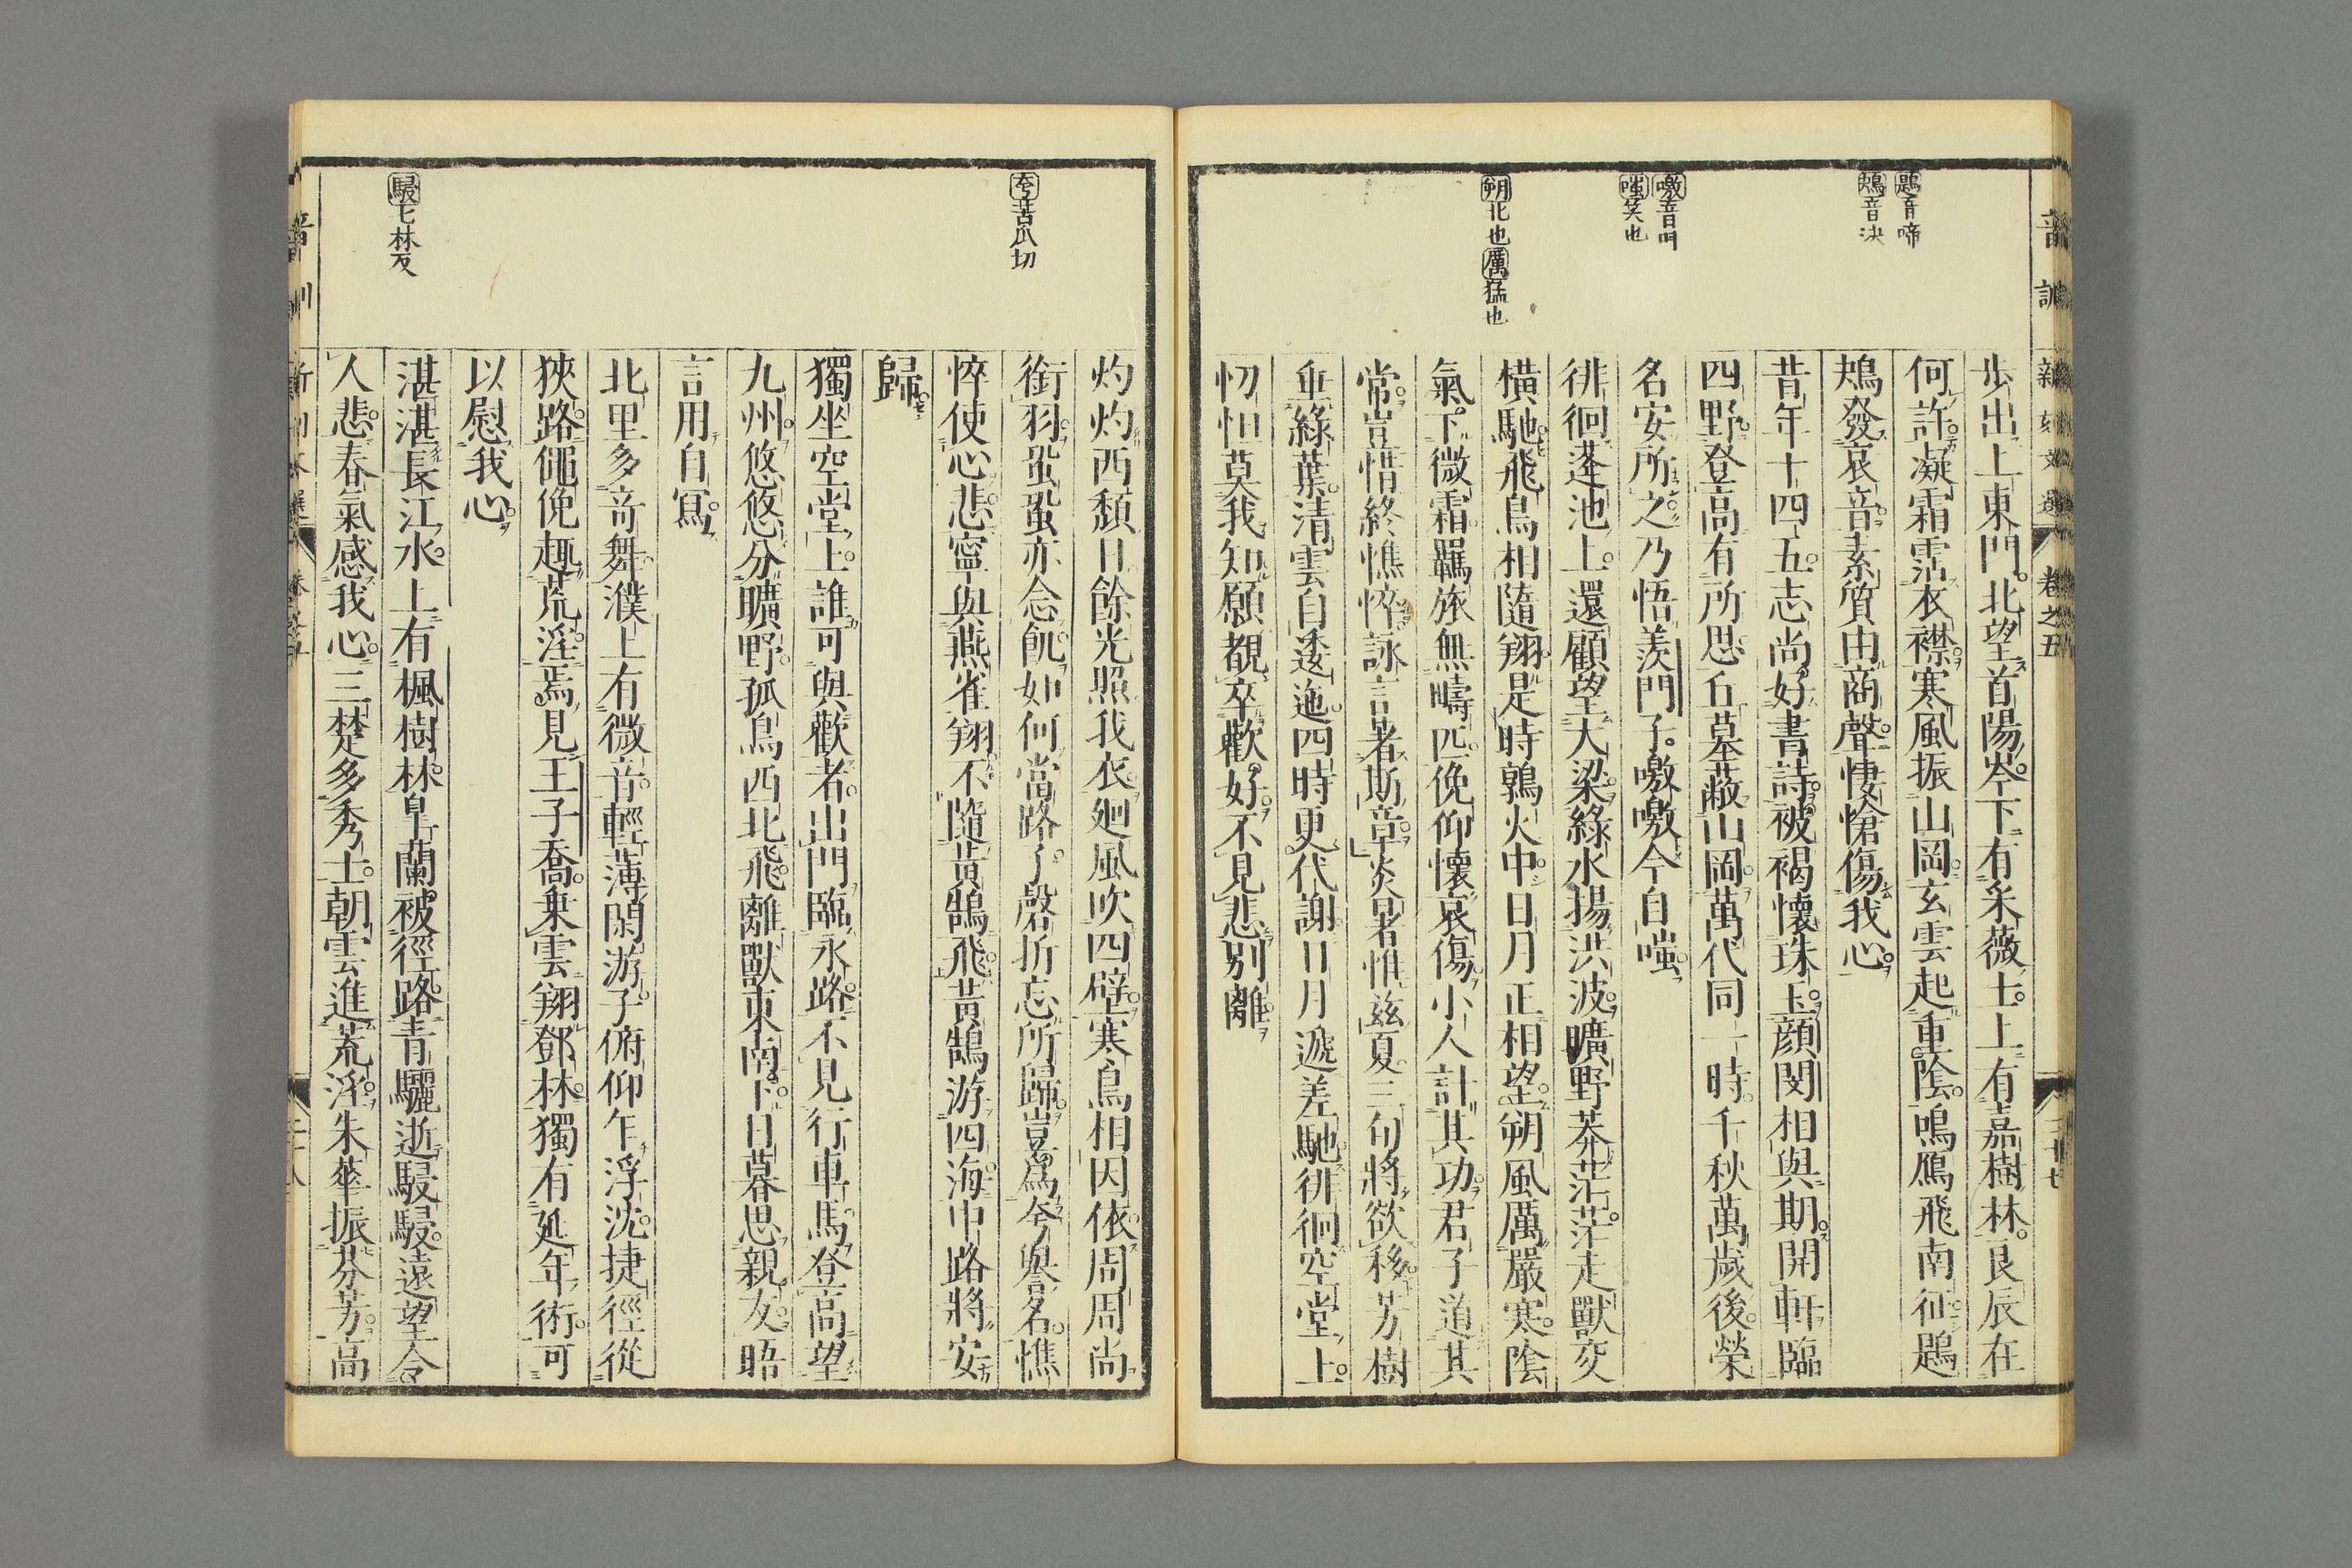 音訓
新刻文選
卷之五
二十七
鶗音啼
鴂音決
噭音叫
嗤笑也
朔北也厲猛也
步出上東門。北望首陽岑。下有采薇士。上有嘉樹林。良辰在
何許。凝霜霑衣襟。寒風振山岡。玄雲起重陰。鳴鴈飛南征。鶗
鴂發哀音。素質由商聲。悽愴傷我心。
昔年十四五。志尚好書詩。被褐懷珠玉。顏閔相與期。開軒臨
四野。登高有所思。丘墓蔽山岡。萬代同一時。千秋萬歲後。榮
名安所之。乃悟羨門子。噭噭今自嗤。
徘徊蓬池上。還顧望大梁。綠水揚洪波。曠野莽茫茫。走獸交
橫馳。飛鳥相隨翔。是時鶉火中。日月正相望。朔風厲嚴寒。陰
氣下微霜。羈旅無疇匹。俛仰懷哀傷。小人計其功。君子道其
常。豈惜終憔悴。詠言著斯章。炎暑惟茲夏。三旬將欲移。芳樹
垂綠葉。清雲自逶迤。四時更代謝。日月遞差馳。徘徊空堂上。
忉怛莫我知。願覩卒歡好。不見悲別離。
夸苦瓜切
駸七林反
灼灼西頹日。餘光照我衣。廻風吹四壁。寒鳥相因依。周周尚
銜羽。蛩蛩亦念飢。如何當路子。磬折忘所歸。豈爲夸譽名。憔
悴使心悲。寧與燕雀翔。不隨黃鵠飛。黃鵠游四海。中路將安
歸。
獨坐空堂上。誰可與歡者。出門臨永路。不見行車馬。登高望
九州。悠悠分曠野。孤鳥西北飛。離獸東南下。日暮思親友。晤
言用自寫。
北里多奇舞。濮上有微音。輕薄閑游子。俯仰乍浮沈。捷徑從
狹路。僶俛趣荒淫。焉見王子喬。乗雲翔鄧林。獨有延年術。可
以慰我心。
湛湛長江水。上有楓樹林。皐蘭被徑路。青驪逝駸駸。遠望令
人悲。春氣感我心。三楚多秀士。朝雲進荒淫。朱華振芬芳。高